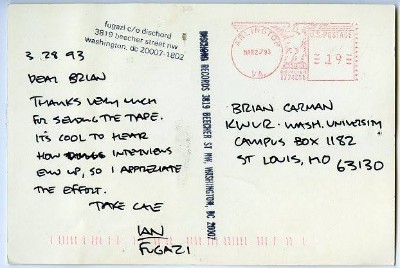 fugazi c/o dischord
3819 beecher street nw
washington, dc 20007-1802
3.28 93
DEAR BRIAN
THANKS VERY MUCH
FOR SENDING THE TAPE.
IT'S COOL TO HEAR
HOW INTERVIEWS
END UP, SO I APPRECIATE
THE EFFORT.
TAKE CARE
IAN
FUGAZI
DISCHORD RECORDS 3819 BEECHER ST NW, WASHINGTON, DC 20007
ARLINGTON
MAR 29 '93
VA.
U.S. POSTAGE
.19
BRIAN CARMAN
KWUR - WASH. UNIVERSITY
CAMPUS BOX 1182
ST LOUIS, MO
63130